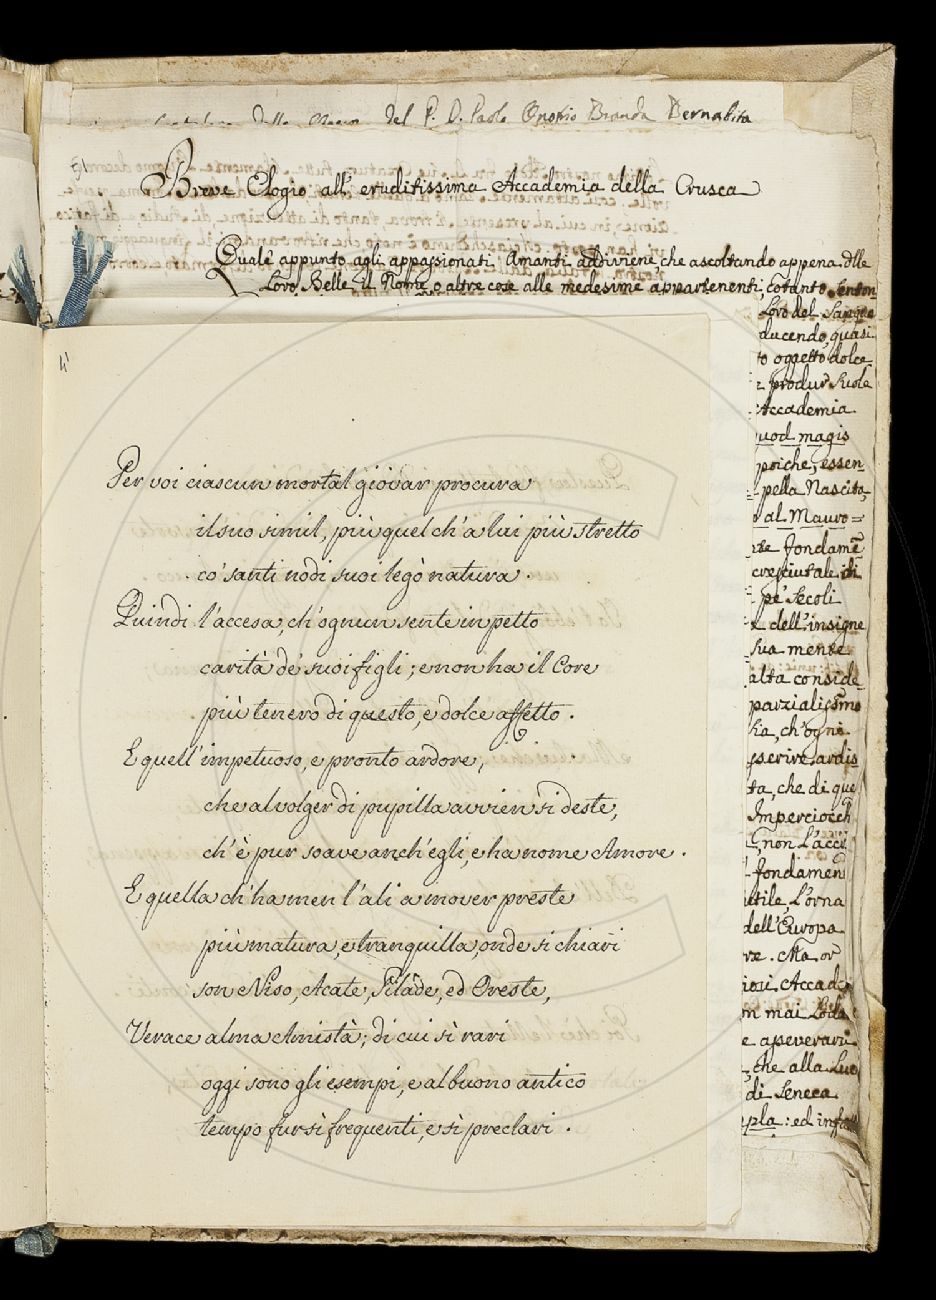 del P. D. Paolo Onofrio Branda Bernabita
Breve Elogio all' eruditissima Accademia della Crusca
Quale appunto agli appassionati Amanti addiviene che ascoltando appena dlle
Loro Belle il Nome o altre cose alle medesime appartenenti, cotanto senton
Loro del Sangue
ducendo, quasi
to oggetto dolce
produr suole
Accademia
uod magis
poiche essen
pella Nascita,
o al Mauro=
te fondamē
cresciutale di
pe' Secoli
e dell'insigne
sua mente
alta conside
parzialissimo
sia, ch'ogni
sserire ardis
ta, che di que
Imperciocch
non l'acci
fondamen
utile, l'orna
dell'Europa
re. Ma or
Accade
m mai Loda
e asseverari
, che alla Luc
di Seneca
mpla: ed infa
4
Per voi ciascun mortal giovar procura
il suo simil, più quel ch'a lui più stretto
co' santi nodi suoi legò natura.
Quindi l'accesa, ch'ognun sente in petto
carità de' suoi figli; e non ha il Core
più tenero di questo, e dolce affetto.
E quell' impetuoso, e pronto ardore,
che al volger di pupilla avvien si deste,
ch'è pur soave anch'egli, e ha nome Amore.
E quella ch'ha men l'ali a mover preste
più matura, e tranquilla, onde si chiari
son Niso, Acate, Pilàde, ed Oreste,
Verace alma Amistà; di cui sì rari
oggi sono gli esempi, e al buono antico
tempo fur sì frequenti, e sì preclari.